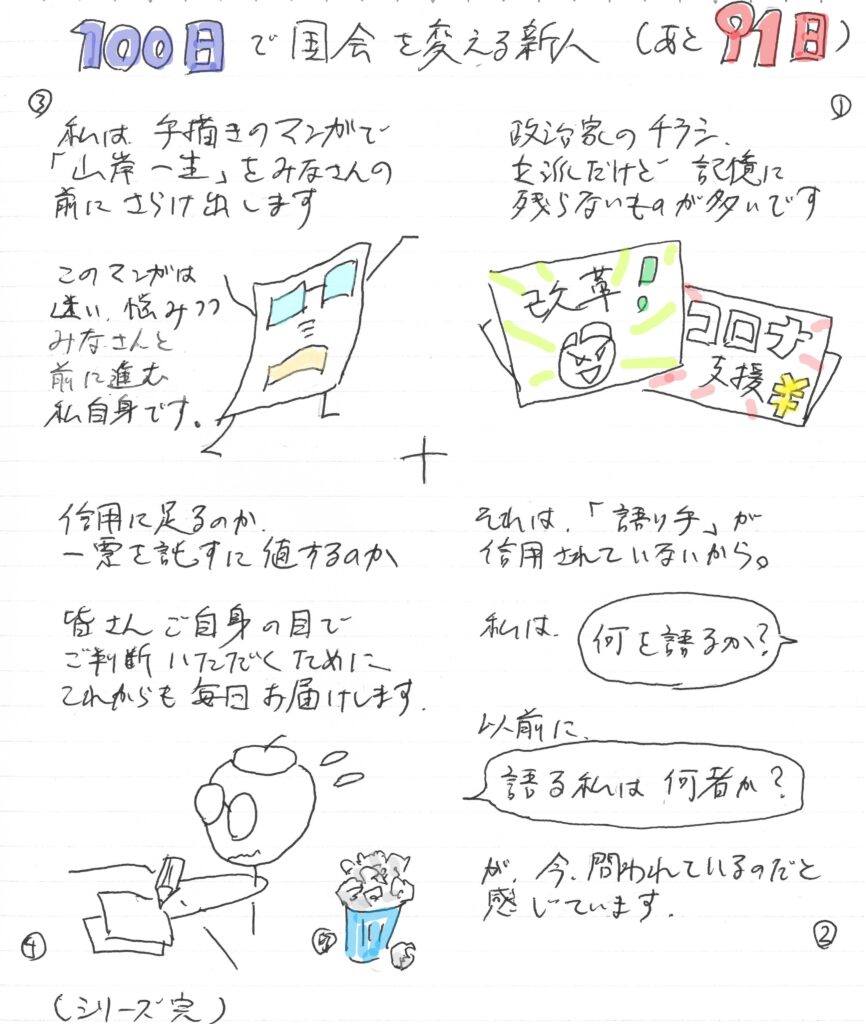 100日で国会を変える新人（あと91日）
①
政治家のチラシ、
立派だけど記憶に
残らないものが多いです
改革！
コロナ
支援¥
それは、「語り手」が
信用されていないから。
私は、
何を語るか？
以前に、
語る私は何者か？
が、今、問われているのだと
感じています。
②
③
私は、手描きのマンガで
「山岸一生」をみなさんの
前にさらけ出します
このマンガは
迷い、悩みつつ
みなさんと
前に進む
私自身です。
信用に足るのか、
一票を託すに値するのか
皆さんご自身の目で
ご判断いただくために、
これからも毎日お届けします。
④
（シリーズ完）